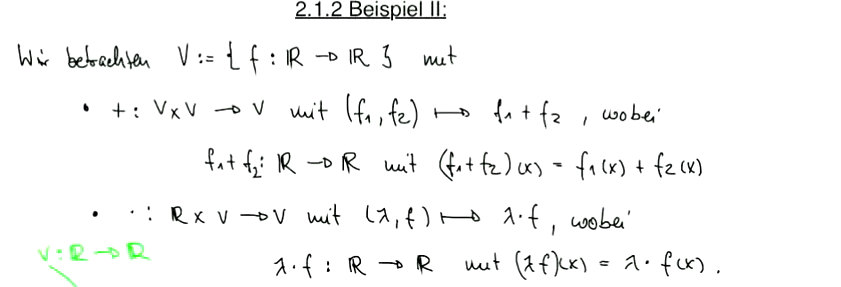 2.1.2 Beispiel II:
Wir betrachten V := { f : ℝ → ℝ } mit
• + : V x V → V mit (f₁, f₂) ↦ f₁ + f₂ , wobei
f₁ + f₂ : ℝ → ℝ mit (f₁ + f₂)(x) = f₁(x) + f₂(x)
• · : ℝ x V → V mit (λ, f) ↦ λ·f , wobei
V : ℝ → ℝ
λ·f : ℝ → ℝ mit (λf)(x) = λ · f(x) .